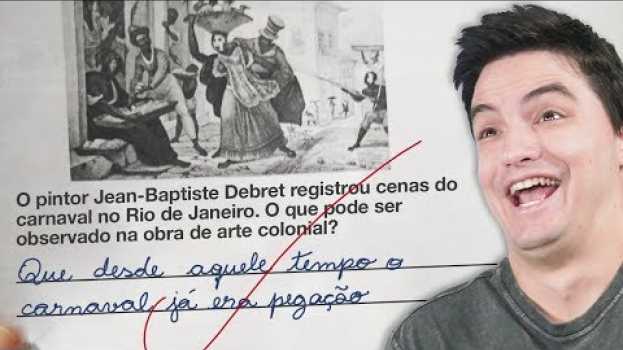 O pintor Jean-Baptiste Debret registrou cenas do
carnaval no Rio de Janeiro. O que pode ser
observado na obra de arte colonial?
Que desde aquele tempo o
carnaval já era pegação